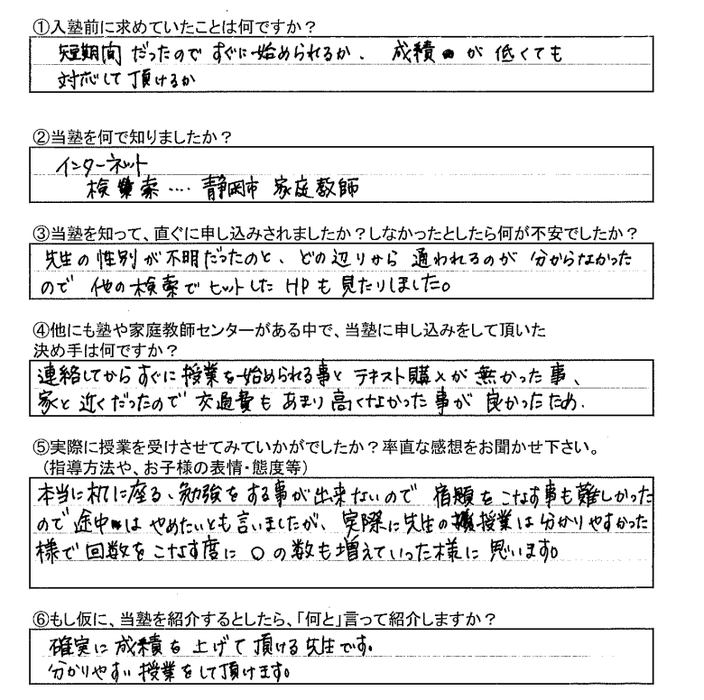 ①入塾前に求めていたことは何ですか？
短期間だったのですぐに始められるか、成績が低くても
対応して頂けるか
②当塾を何で知りましたか？
インターネット
検索…. 静岡市 家庭教師
③当塾を知って、直ぐに申し込みされましたか？しなかったとしたら何が不安でしたか？
先生の性別が不明だったのと、どの辺りから通われるのが分からなかった
ので他の検索でヒットしたHPも見たりしました。
④他にも塾や家庭教師センターがある中で、当塾に申し込みをして頂いた
決め手は何ですか？
連絡してからすぐに授業を始められる事とテキスト購入が無かった事、
家と近くだったので交通費もあまり高くなかった事が良かったため.
⑤実際に授業を受けさせてみていかがでしたか？率直な感想をお聞かせ下さい。
（指導方法や、お子様の表情・態度等）
本当に机に座る、勉強をする事が出来ないので宿題をこなす事も難しかった
ので途中はやめたいとも言いましたが、実際に先生の授業は分かりやすかった
様で回数をこなす度に○の数も増えていった様に思います。
⑥もし仮に、当塾を紹介するとしたら、「何と」言って紹介しますか？
確実に成績を上げて頂ける先生です。
分かりやすい授業をして頂けます。